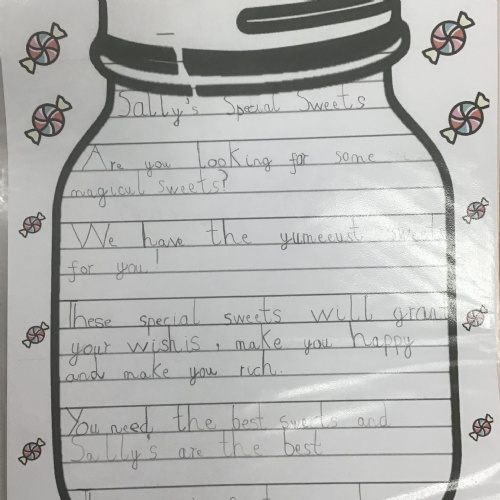 Sally's Special Sweets
Are you looking for some
magical sweets?
We have the yumeeust sweets
for you!
These special sweets will grant
your wishis, make you happy
and make you rich.
You need the best sweets and
Sally's are the best